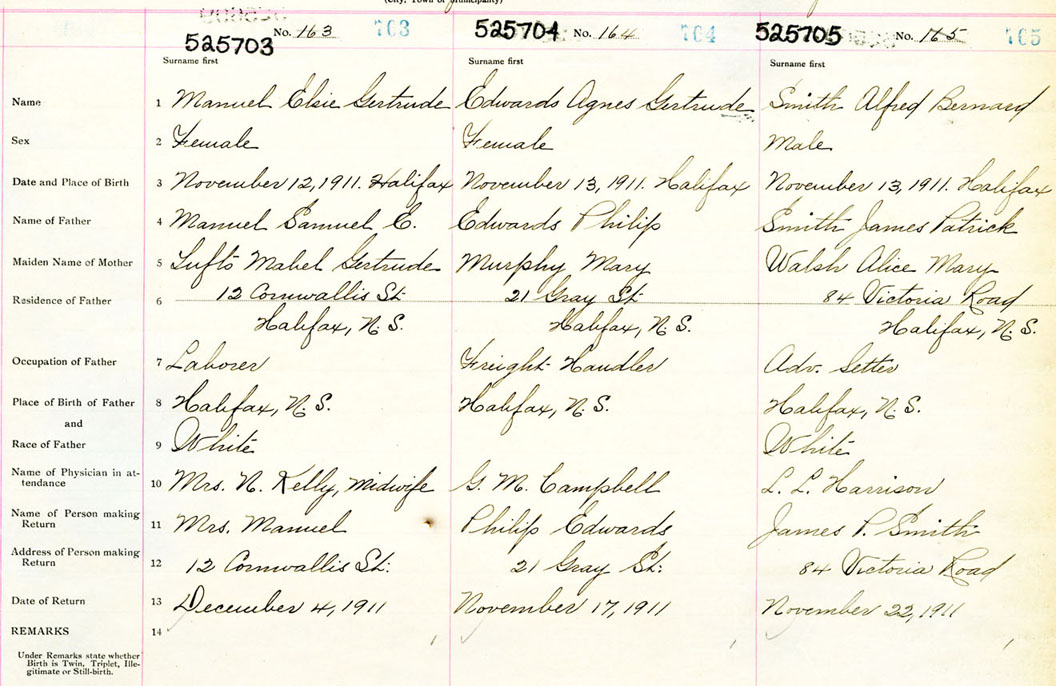 (City, Town or Municipality)
525703 No. 163 763 525704 No. 164 764 525705 No. 165 765
Surname first Surname first Surname first
Name 1 Manuel Elsie Gertrude Edwards Agnes Gertrude Smith Alfred Bernard
Sex 2 Female Female Male
Date and Place of Birth 3 November 12, 1911. Halifax November 13, 1911. Halifax November 13, 1911. Halifax
Name of Father 4 Manuel Samuel E. Edwards Philip Smith James Patrick
Maiden Name of Mother 5 Lufts Mabel Gertrude Murphy Mary Walsh Alice Mary
Residence of Father 6 12 Cornwallis St. 21 Gray St. 84 Victoria Road
Halifax, N.S. Halifax, N.S. Halifax, N.S.
Occupation of Father 7 Laborer Freight Handler Adv. Setter
Place of Birth of Father 8 Halifax, N.S. Halifax, N.S. Halifax, N.S.
and
Race of Father 9 White White
Name of Physician in at-
tendance 10 Mrs. N. Kelly, Midwife G. M. Campbell L. L. Harrison
Name of Person making
Return 11 Mrs. Manuel Philip Edwards James P. Smith
Address of Person making
Return 12 12 Cornwallis St. 21 Gray St. 84 Victoria Road
Date of Return 13 December 4, 1911 November 17, 1911 November 22, 1911
REMARKS 14
Under Remarks state whether
Birth is Twin, Triplet, Ille-
gitimate or Still-birth.